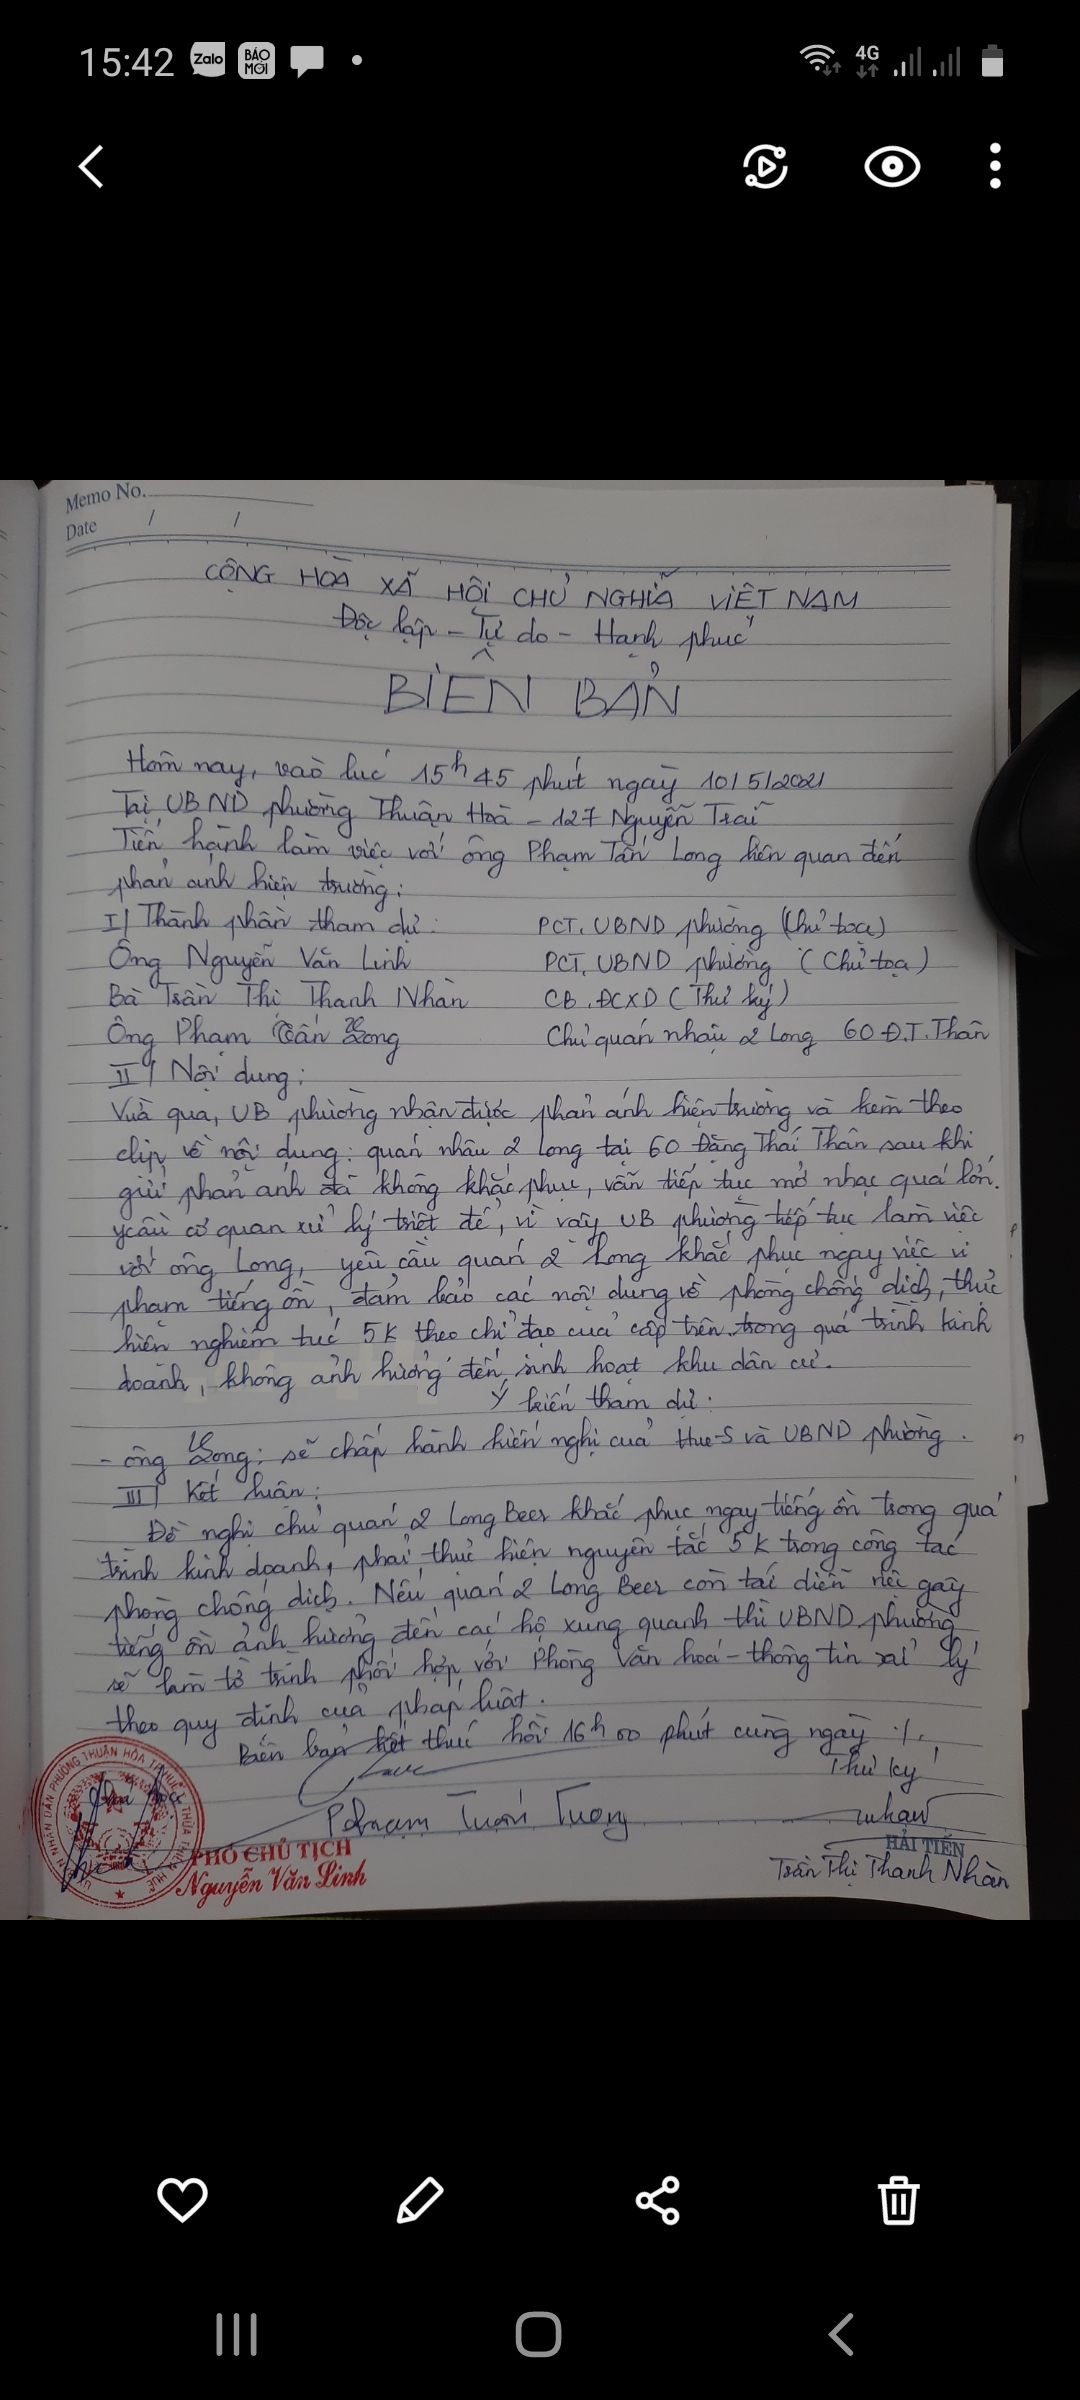 15:42 Zalo BÁO MỚI 4G
Memo No.
Date / /
CỘNG HOÀ XÃ HỘI CHỦ NGHĨA VIỆT NAM
Độc lập - Tự do - Hạnh phúc
BIÊN BẢN
Hôm nay, vào lúc 15h45 phút ngày 10/5/2021
Tại UBND phường Thuận Hoà - 127 Nguyễn Trãi
Tiến hành làm việc với ông Phạm Tấn Long liên quan đến
phản ánh hiện trường:
I/ Thành phần tham dự: PCT. UBND phường (Chủ toạ)
Ông Nguyễn Văn Linh PCT. UBND phường (Chủ toạ)
Bà Trần Thị Thanh Nhàn CB. ĐCXD (Thư ký)
Ông Phạm Tấn Long Chủ quán nhậu 2 Long 60 Đ.T.Thân
II/ Nội dung:
Vừa qua, UB phường nhận được phản ánh hiện trường và kèm theo
clip về nội dung: quán nhậu 2 Long tại 60 Đặng Thái Thân sau khi
gửi phản ánh đã không khắc phục, vẫn tiếp tục mở nhạc quá lớn.
ycầu cơ quan xử lý triệt để, vì vậy UB phường tiếp tục làm việc
với ông Long, yêu cầu quán 2 Long khắc phục ngay việc vi
phạm tiếng ồn, đảm bảo các nội dung về phòng chống dịch, thực
hiện nghiêm túc 5K theo chỉ đạo của cấp trên trong quá trình kinh
doanh, không ảnh hưởng đến sinh hoạt khu dân cư.
Ý kiến tham dự:
- ông Long: sẽ chấp hành kiến nghị của Hue-S và UBND phường.
III/ Kết luận:
Đề nghị chủ quán 2 Long Beer khắc phục ngay tiếng ồn trong quá
trình kinh doanh, phải thực hiện nguyên tắc 5K trong công tác
phòng chống dịch. Nếu quán 2 Long Beer còn tái diễn việc gây
tiếng ồn ảnh hưởng đến các hộ xung quanh thì UBND phường
sẽ làm tờ trình phối hợp với Phòng Văn hoá - thông tin xử lý
theo quy định của pháp luật.
Biên bản kết thúc hồi 16h00 phút cùng ngày ./.
Thư ký
Chủ toạ
PHÓ CHỦ TỊCH
Nguyễn Văn Linh
HẢI TIẾN
Trần Thị Thanh Nhàn